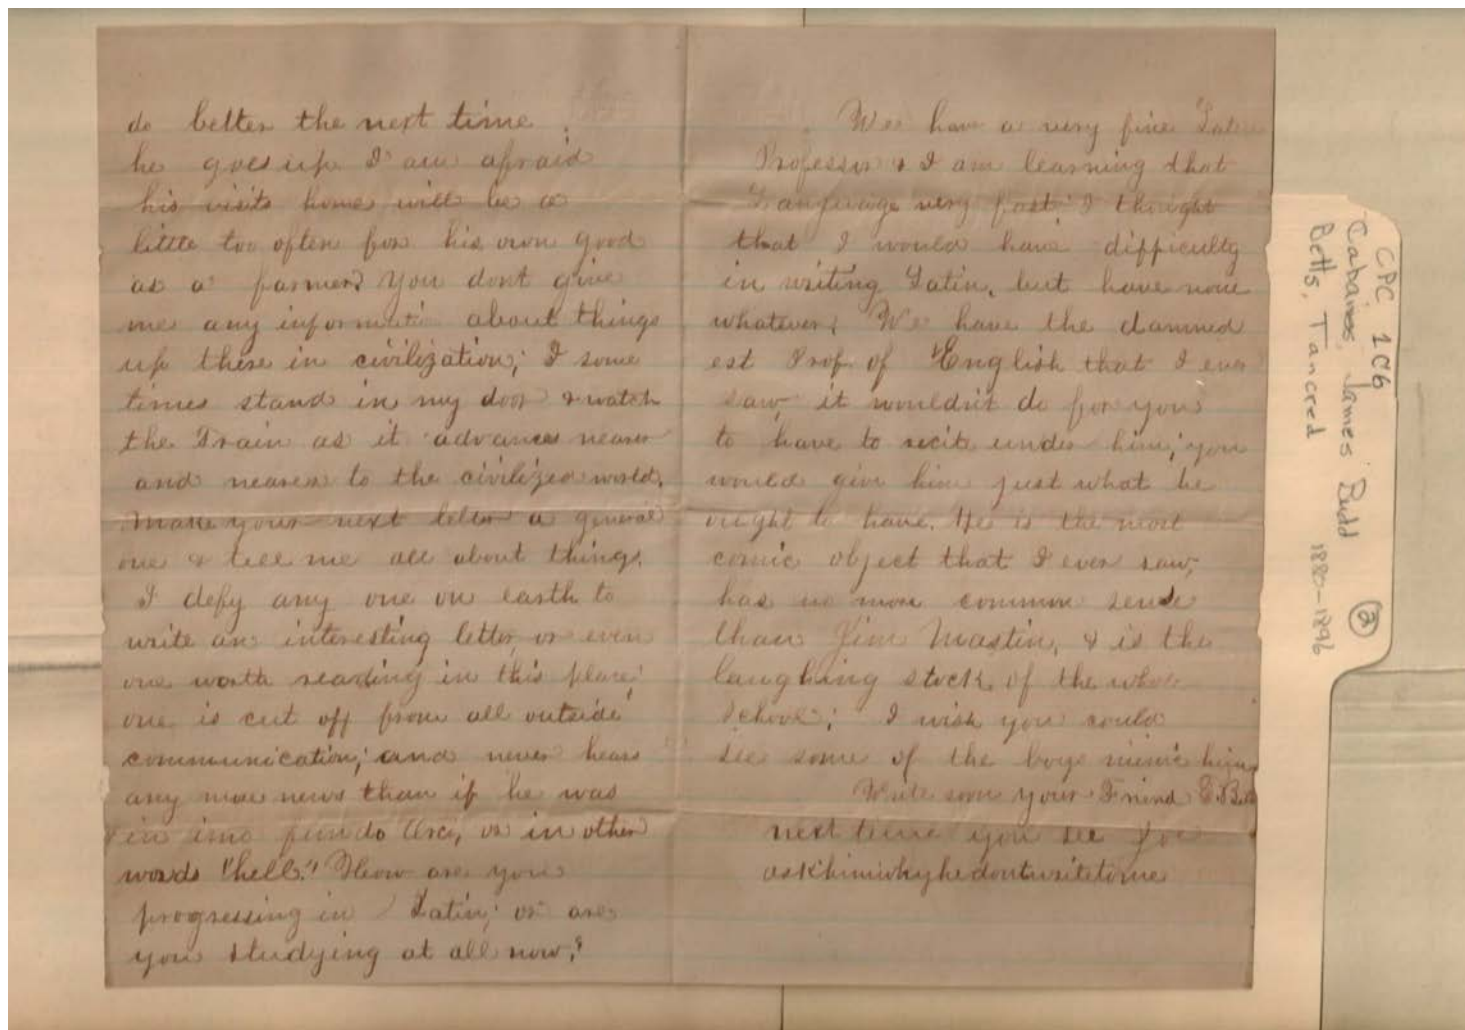 do better the next time
he goes up I am afraid
his visits home will be a
little too often for his own good
as a farmer. You dont give
me any informati about things
up there in civilization; I some
times stand in my door & watch
the Train as it advances nearer
and nearer to the civilized world.
Make your next letter a general
one & tell me all about things.
I defy any one on earth to
write an interesting letter, or even
one worth reading in this place;
one is cut off from all outside
communication; and never hears
any more news than if he was
in imo fundo Orci, or in other
words "hell." How are you
progressing in Latin; or are
you studying at all now?
We have a very fine Latin
Professor & I am learning that
Language very fast; I thought
that I would have difficulty
in writing Latin, but have none
whatever; We have the damned
est Prof. of English that I ever
saw, it wouldn't do for you
to have to recite under him; you
would give him just what he
ought to have. He is the most
comic object that I ever saw,
has no more common sense
than Jim Mastin, & is the
laughing stock of the whole
School; I wish you could
see some of the boys mimic him
Write soon your Friend T. Betts
next time you see Joe
askhimwhyhedontwritetome
CPC 1C6
Cabaniss, James Budd (2)
Betts, Tancred 1880-1896